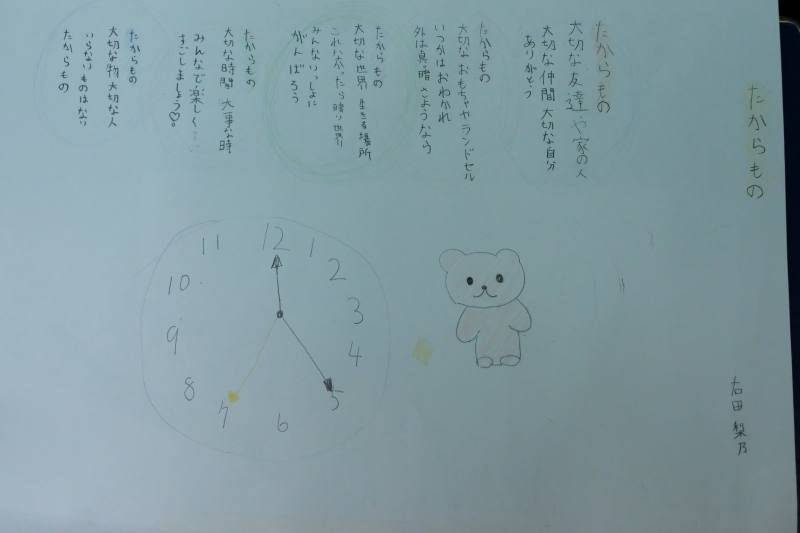 たからもの
右田 梨乃
たからもの
大切な友達や家の人
大切な仲間 大切な自分
ありがとう
たからもの
大切なおもちゃやランドセル
いつかはおわかれ
外は真っ暗 さようなら
たからもの
大切な世界 生きる場所
みんないっしょに
がんばろう
たからもの
大切な時間 大事な時
みんなで楽しく……
すごしましょう♡。
たからもの
大切な物 大切な人
いらないものはない
たからもの
12
1
2
3
4
5
6
7
8
9
10
11